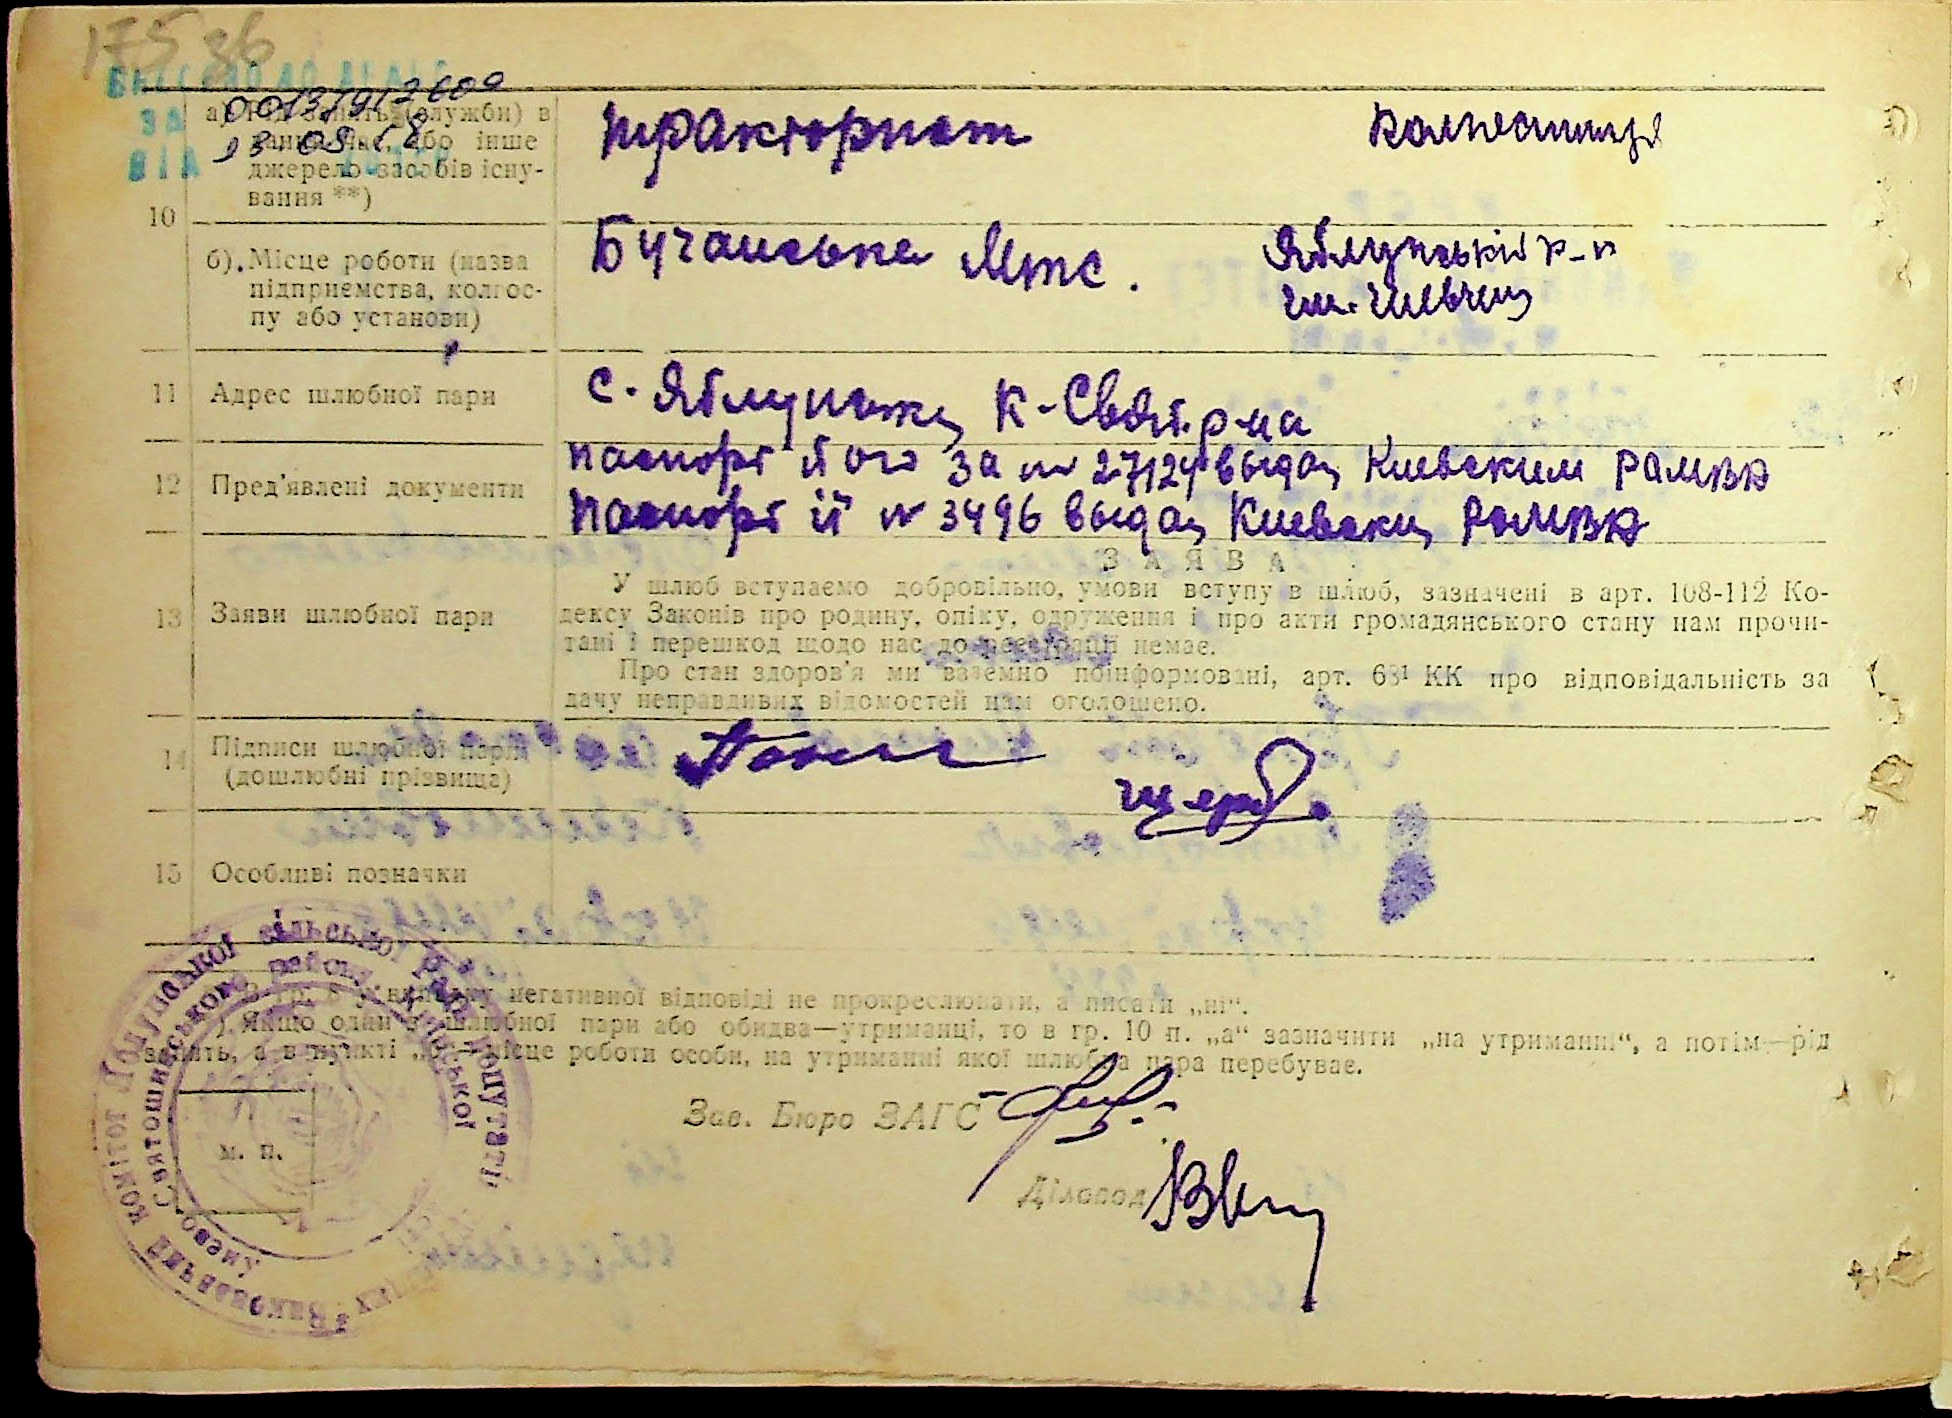 175 36
00131912609
13.08.18
а) Рід занять (служби) в
даний час, або інше
джерело засобів існу-
вання **)
тракторист
колгоспниця
10
б). Місце роботи (назва
підприємства, колгос-
пу або установи)
Бучанська Мтс.
Яблунський к-п
ім. Шевчен
11 Адрес шлюбної пари
с. Яблунька К-Свят. р-на
12 Пред'явлені документи
паспорт його за № 27124 выдан Киевским
паспорт її № 3496 выдан Киевски
13 Заяви шлюбної пари
ЗАЯВА
У шлюб вступаємо добровільно, умови вступу в шлюб, зазначені в арт. 108-112 Ко-
дексу Законів про родину, опіку, одруження і про акти громадянського стану нам прочи-
тані і перешкод щодо нас до реєстрації немає.
Про стан здоров'я ми взаємно поінформовані, арт. 68¹ КК про відповідальність за
дачу неправдивих відомостей нам оголошено.
14 Підписи шлюбної пари
(дошлюбні прізвища)
Щерб
15 Особливі позначки
В гр. 8 у випадку негативної відповіді не прокреслювати, а писати „ні“.
) Якщо один з шлюбної пари або обидва—утриманці, то в гр. 10 п. „а“ зазначити „на утриманні“, а потім—рід
занять, а в пункті „б“—місце роботи особи, на утриманні якої шлюбна пара перебуває.
Зав. Бюро ЗАГС
м. п.
Діловод
Виконавчий комітет Яблунської сільської ради депутатів
Києво-Святошинського району Київської